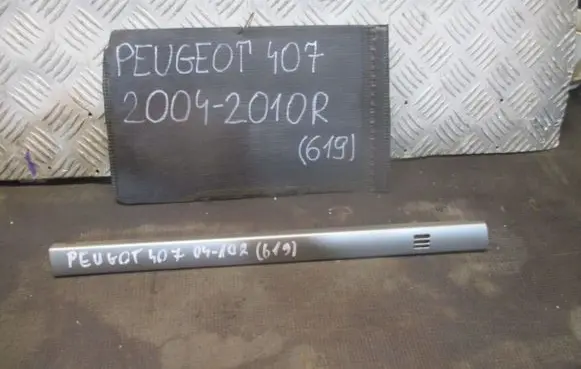 PEUGEOT 407
2004-2010R
(619)
PEUGOT 407 04-10R (619)